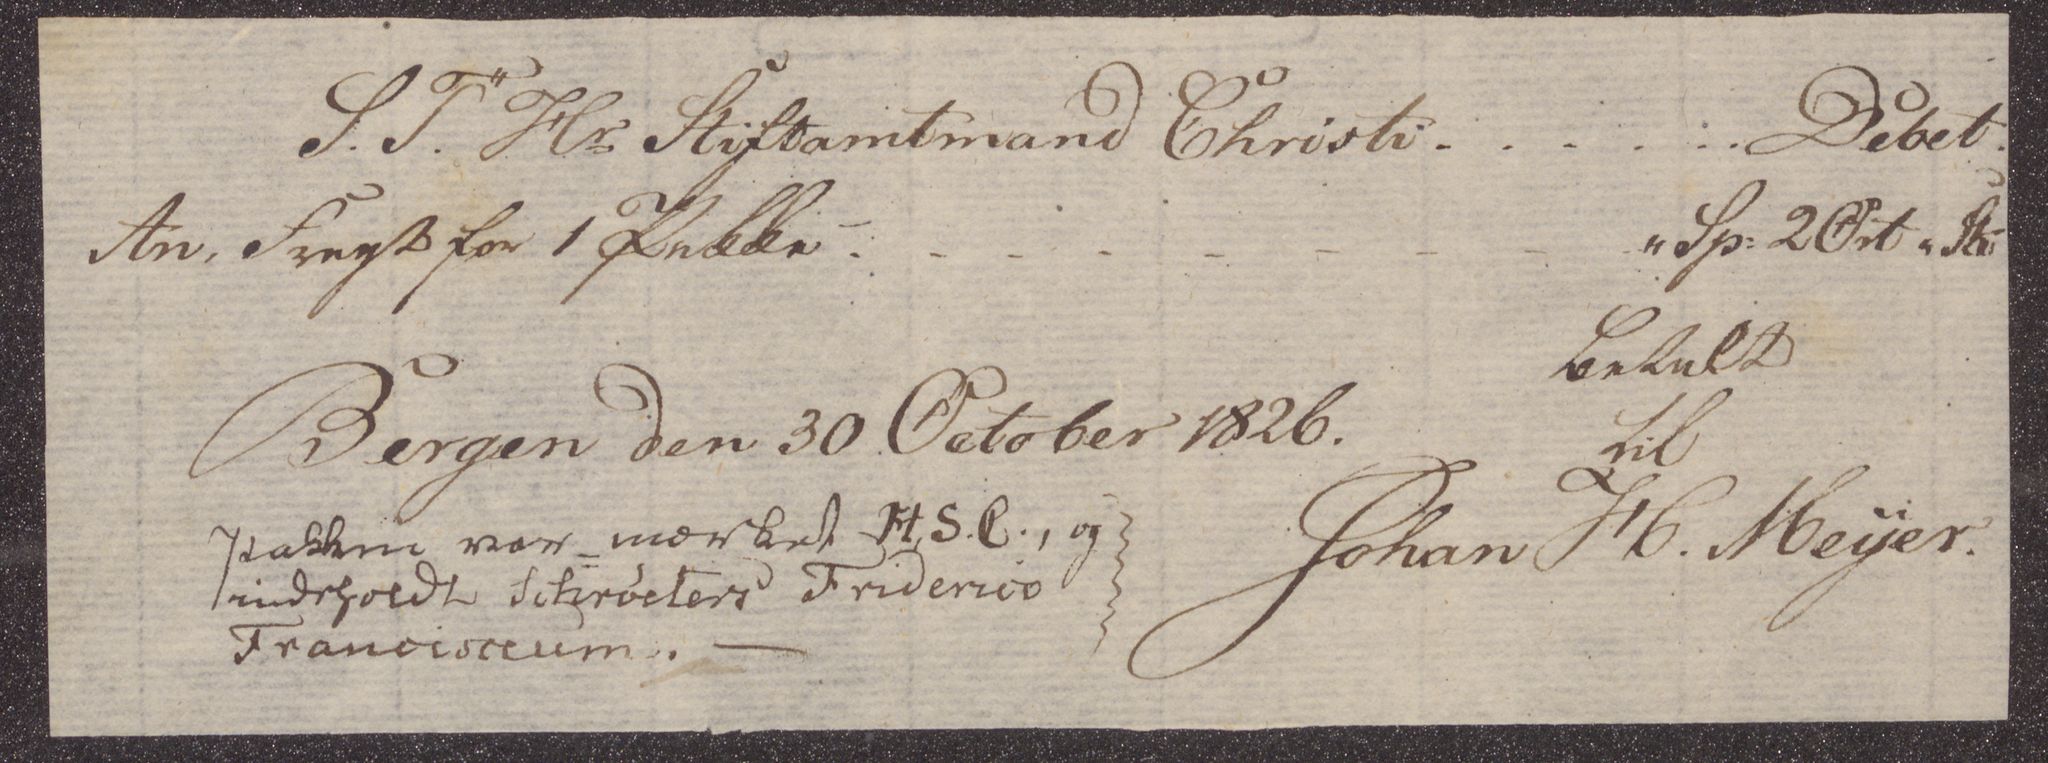 S. T. Hr Stiftamtmand Christi . . . . . . . Debet.
An, Fragt for 1 Pakke . - - - - - - - " Sp: 2 Ort " Sk:
betalt
til
Bergen den 30 October 1826.
Johan H. Meÿer.
Pakken var mærket H. S. C., og
indeholdt Schröeters Friderico
Francisceum. —